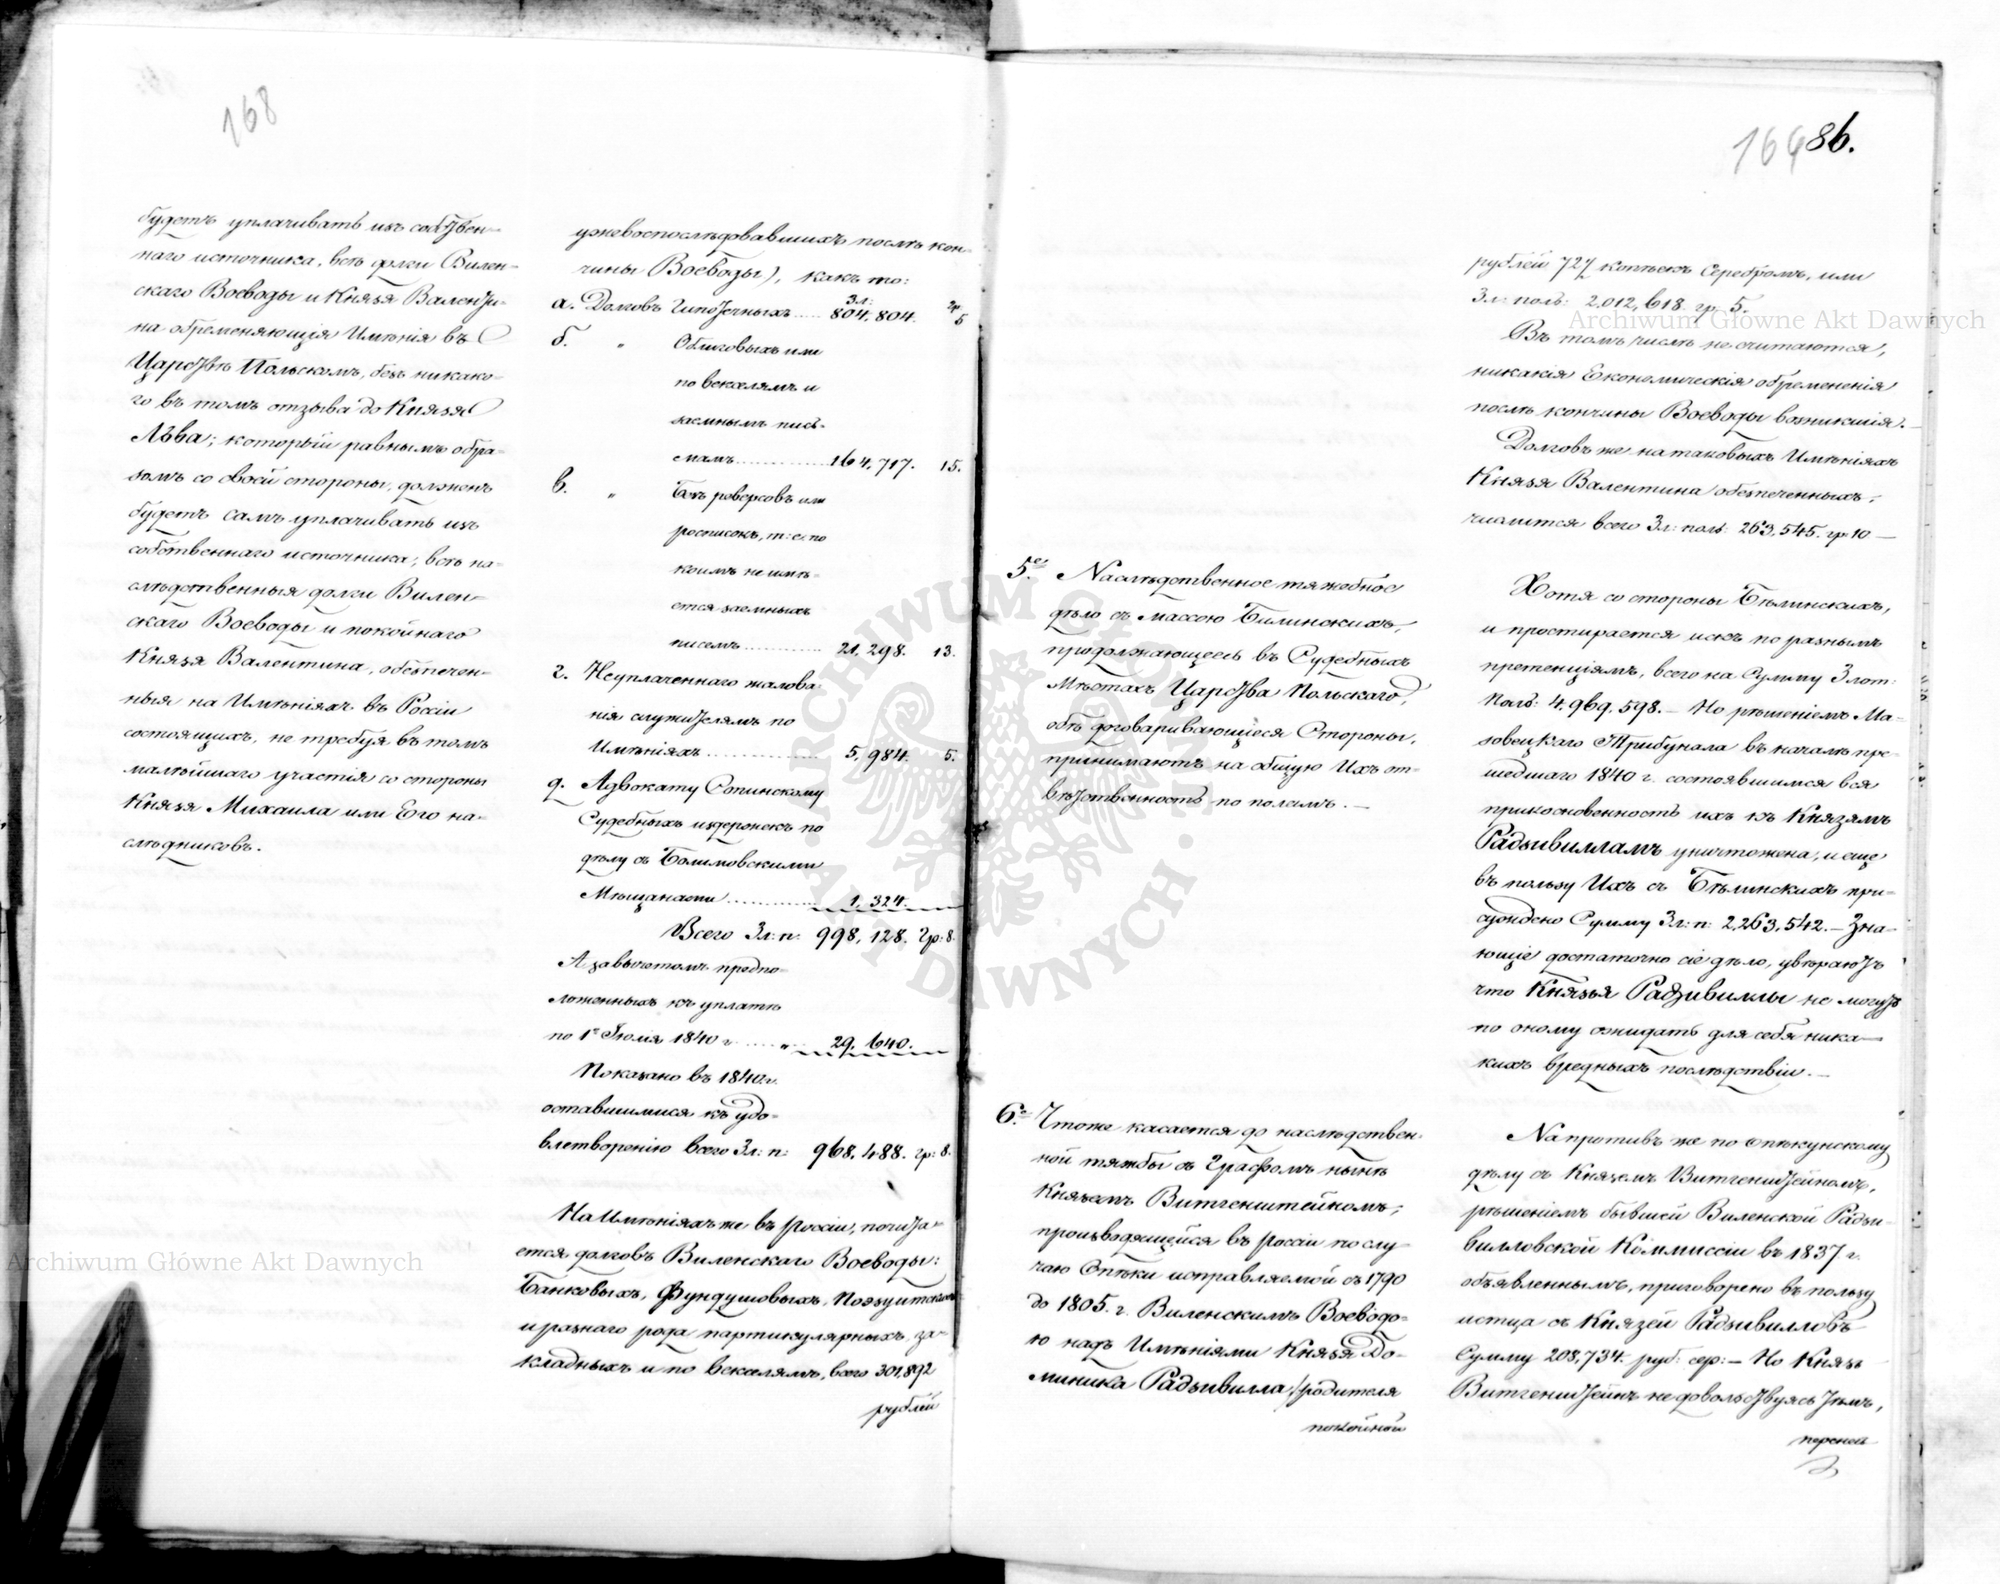 168
будетъ уплачивать изъ собствен-
наго источника, всѣ долги Вилен-
скаго Воеводы и Князя Валенти-
на обременяющія Имѣнія въ
Царствѣ Польскомъ, безъ никако-
го въ томъ отзыва до Князя
Льва; который равнымъ обра-
зомъ со своей стороны, долженъ
будетъ самъ уплачивать изъ
собственнаго источника, всѣ на-
слѣдственныя долги Вилен-
скаго Воеводы и покойнаго
Князя Валентина, обезпечен-
ныя на Имѣніяхъ въ Россіи
состоящихъ, не требуя въ томъ
малѣйшаго участія со стороны
Князя Михаила или Его на-
слѣдниковъ.
ужевоспослѣдовавшихъ послѣ кон-
чины Воеводы), какъ то:
а. Долговъ Гипотечныхъ ..... Зл: 804,804. гр 5
б. „ Облиговыхъ или
по векселямъ и
заемнымъ пись-
мамъ ............... 164,717. 15.
в. „ Безъ реверсовъ или
росписокъ, т: е: по
коимъ не имѣ-
ется заемныхъ
писемъ ............. 21,298. 13.
г. Неуплаченнаго жалова-
нія служителямъ по
Имѣніяхъ ................ 5,984. 5.
д. Адвокату Сопинскому
Судебныхъ издержекъ по
дѣлу съ Болимовскими
Мѣщанами ............. 1,324.
Всего Зл: п: 998,128. Гр: 8.
А завычетомъ предпо-
ложенныхъ къ уплатѣ
по 1е Іюля 1840 г ..... „ 29,640.
Показано въ 1840 г.
оставшимися къ удо-
влетворенію всего Зл: п: 968,488. гр: 8.
На Имѣніяхъ же въ Россіи, почита-
ется долговъ Виленскаго Воеводы:
Банковыхъ, Фундушовыхъ, Поэзуитскихъ
и разнаго рода партикулярныхъ, за-
кладныхъ и по векселямъ, всего 301,892
рублей
164 86.
5.е Наслѣдственное тяжебное
дѣло съ массою Билинскихъ,
продолжающееся въ Судебныхъ
Мѣстахъ Царства Польскаго,
обѣ договаривающіеся Стороны,
принимаютъ на общую Ихъ от-
вѣтственность по поламъ. —
6.е Чтоже касается до наслѣдствен-
ной тяжбы съ Графомъ нынѣ
Княземъ Витгенштейномъ,
производящейся въ Россіи по слу-
чаю Опѣки исправляемой съ 1790
до 1805. г. Виленскимъ Воеводо-
ю надъ Имѣніями Князя До-
миника Радзивилла, /родителя
покойной
рублей 72½ копѣекъ Серебромъ, или
Зл: поль: 2,012,618. гр. 5.
Въ томъ числѣ не считаются,
никакія Економическія обремененія
послѣ кончины Воеводы возникшія. —
Долговъ же на таковыхъ Имѣніяхъ
Князя Валентина обезпеченныхъ,
числится всего Зл: поль: 263,545. гр: 10 —
Хотя со стороны Бѣлинскихъ,
и простирается искъ по разнымъ
претенціямъ, всего на Сумму Злот:
Поль: 4,969,598. — Но рѣшеніемъ Ма-
зовецкаго Трибунала въ началѣ пре-
шедшаго 1840 г. состоявшимся вся
прикосновенность ихъ къ Князямъ
Радзивилламъ уничтожена, и еще
въ пользу Ихъ съ Бѣлинскихъ при-
суждено Сумму Зл: п: 2,263,542. — Зна-
ющіе достаточно сіе дѣло, увѣраютъ
что Князья Радзивиллы не могутъ
по оному ожидать для себя ника-
кихъ вредныхъ послѣдствій. —
Напротивъ же по опѣкунскому
дѣлу съ Княземъ Витгенштейномъ,
рѣшеніемъ бывшей Виленской Радзи-
вилловской Коммиссіи въ 1837 г.
объявленнымъ, приговорено въ пользу
истца съ Князей Радзивилловъ
Сумму 208,734. руб: сер: — Но Князь
Витгенштейнъ не довольствуясь тѣмъ,
перенесъ
Archiwum Główne Akt Dawnych
Archiwum Główne Akt Dawnych
ARCHIWUM GŁÓWNE AKT DAWNYCH